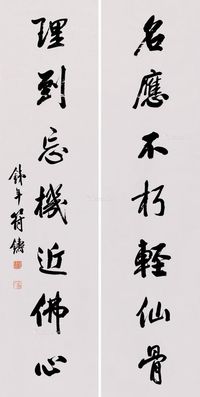 名應不朽輕仙骨
理到忘機近佛心
符鑄